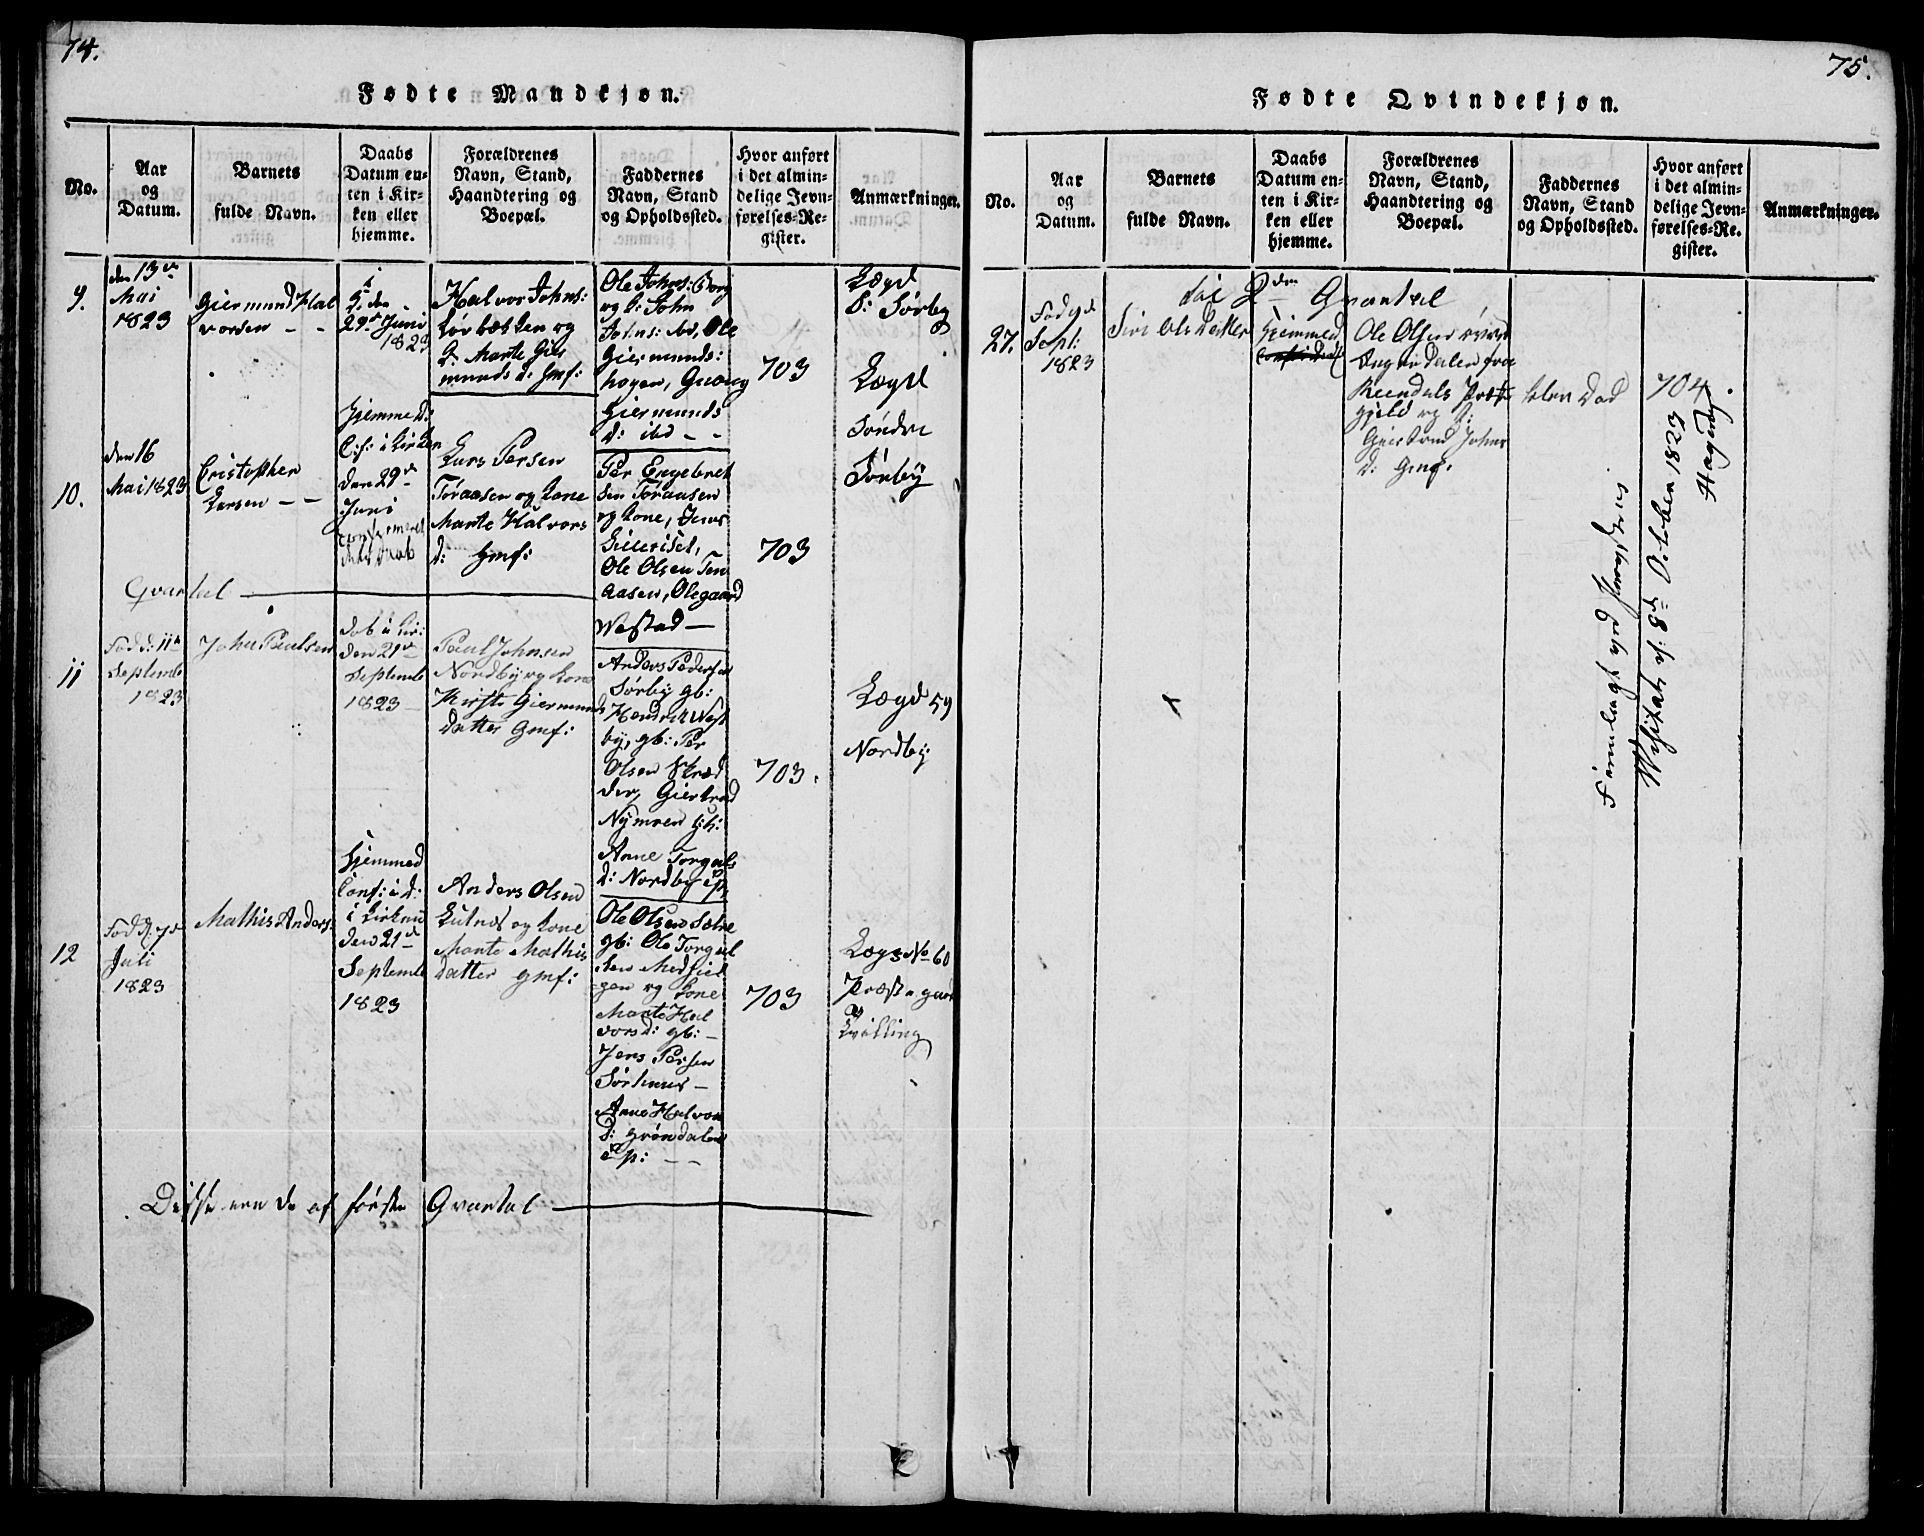 74.
Fødte Mandkjøn.
No.
Aar
og
Datum.
Barnets
fulde Navn.
Daabs
Datum en-
ten i Kir-
ken eller
hjemme.
Forældrenes
Navn, Stand,
Haandtering og
Boepæl.
Faddernes
Navn, Stand
og Opholdssted.
Hvor anført
i det almin-
delige Jevn-
førelses-Re-
gister.
Anmærkninger.
9.
den 13de
Mai
1823
Giermund Hal
vorsen - -
29de Juni
1823
Halvor Johns:
og
Marte Gier
munds d: Gmf:
Ole Johns: Borg
og k: John
Johns: ibd, Ole
Giermunds:
hogen, Guang
Giermunds
d: ibd - -
703
Lægd
S: Sørby
10.
den 16
Mai 1823
Cristopher
Larsen - -
Hjemme d:
i Kirken
den 29de
Juni
Lars Persen
Toraasen og kone
Marte Halvors
d: Gmf:
Per Engebret
sen Toraasen
og kone, Jens
Ole Olsen Tor
aasen, Olegaard
Westad -
703
Lægd
Søndre
Sørby
Qvartal
11
Fød d: 11te
Septemb
1823
John Paulsen
døb i Kir:
den 21de
Septemb
1823
Paul Johnsen
Nordby og kone
Kirsti Giermunds
datter Gmf:
Anders Pederse
Sørby gb:
Hendrik West
by, gb: Per
Olsen Skræd
der, Giertrud
Nymoen
Anne Torgals
d: Nordby
703.
Lægd 59
Nordby
12
Fød d. 7de
Juli
1823
Mathis Anders:
Hjemmed
Conf: i d:
i Kirken
den 21de
Septemb
1823
Anders Olsen
Lutnes og kone
Marte Mathis
datter gmf:
Ole Olsen
gb: Ole Torgal
sen
og kone
Marte Hal
vorsd: gb: -
Jens Persen
Sørhuus -
Anne Halvors
d: Grøndalen
p: - -
703
Lægd No 60
Præste gaar
Qvilling
Disse ere de af første Qvartal
75.
Fødte Qvindekjøn.
No.
Aar
og
Datum.
Barnets
fulde Navn.
Daabs
Datum en-
ten i Kir-
ken eller
hjemme.
Forældrenes
Navn, Stand,
Haandtering og
Boepæl.
Faddernes
Navn, Stand
og Opholdssted.
Hvor anført
i det almin-
delige Jevn-
førelses-Re-
gister.
Anmærkninger.
til 2den Qvartal
27.
Fød 9de
Sept:
1823
Siri Olsdatter
Hjemmed
Ole Olsen
fra
Reendals Præste
gjeld og k:
Giertrud Johns
d: Gmf.
blev Død
704
Fremlagt ved
Visitats d: 8de October 1823